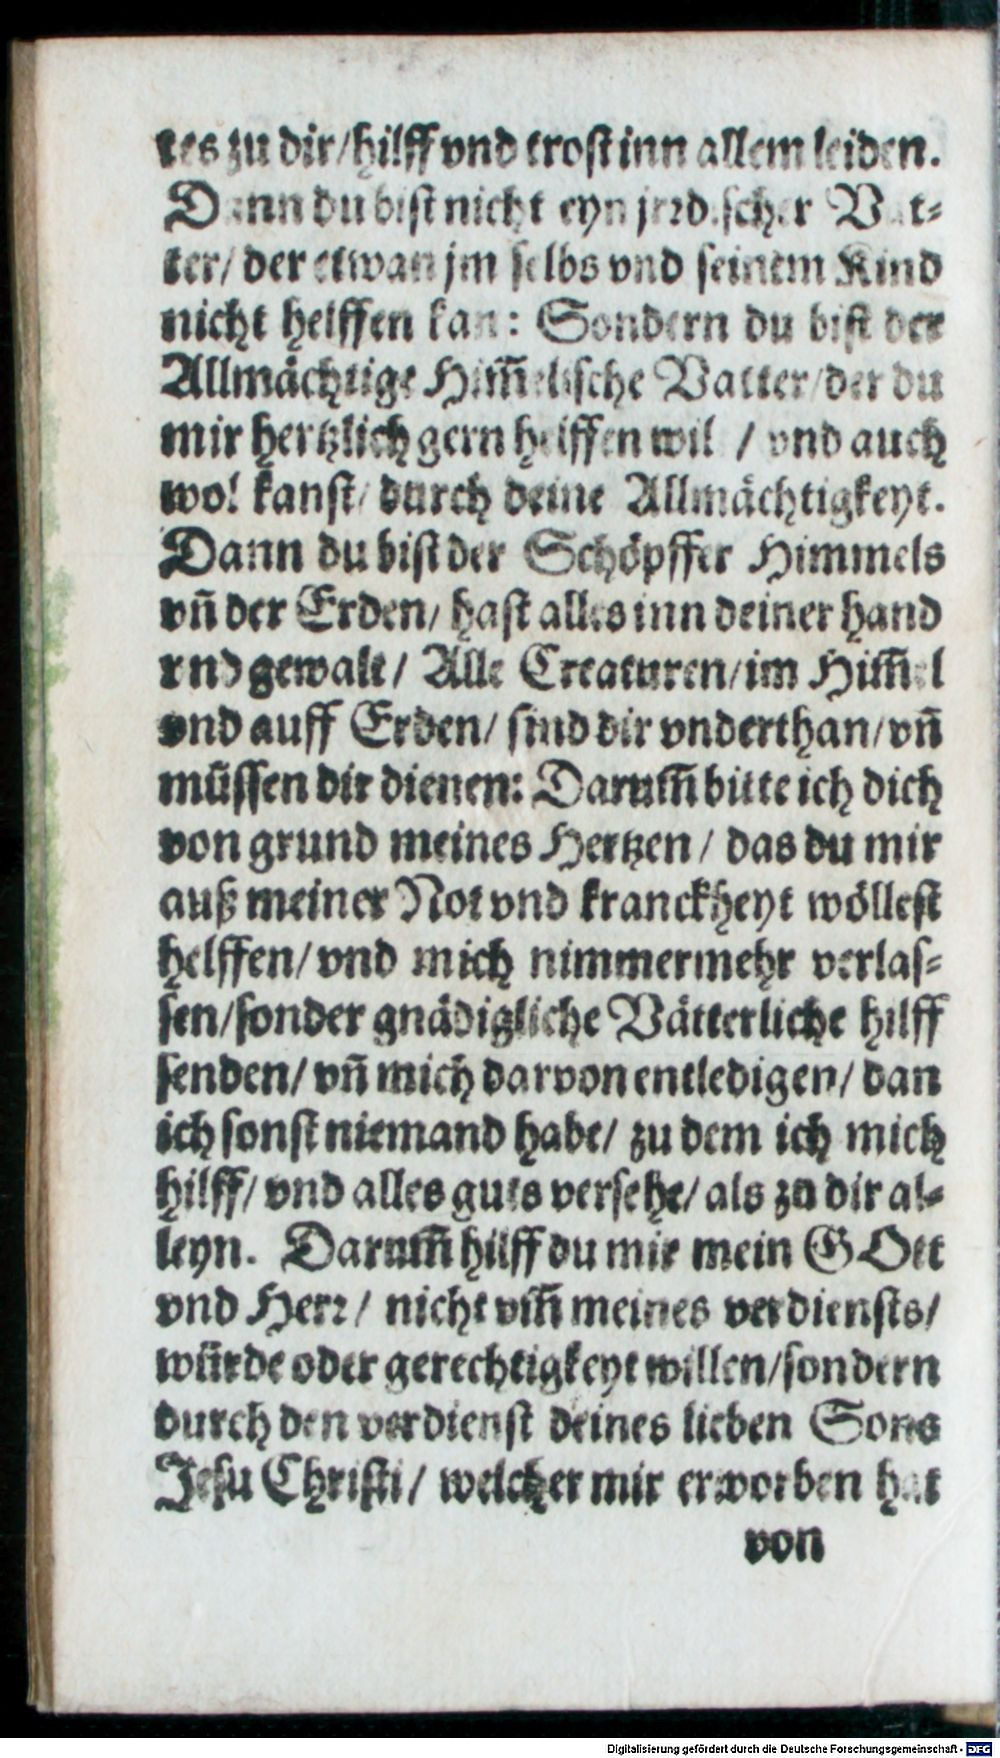 tes zu dir/hilff vnd trost inn allem leiden.
Dann du bist nicht eyn jrrdischer Vat⸗
ter/ der etwan jm selbs vnd seinem Kind
nicht helffen kan: Sondern du bist der
Allmächtige Him̃elische Vatter/der du
mir hertzlich gern helffen wil / vnd auch
wol kanst/ durch deine Allmächtigkeyt.
Dann du bist der Schöpffer Himmels
vñ der Erden/ hast alles inn deiner hand
vnd gewalt/ Alle Creaturen/im Him̃el
vnd auff Erden/ sind dir vnderthan/vñ
müssen dir dienen: Darum̃ bitte ich dich
von grund meines Hertzen/ das du mir
auß meiner Not vnd kranckheyt wöllest
helffen/vnd mich nimmermehr verlas⸗
sen/sonder gnädigliche Vätterliche hilff
senden/ vñ mich darvon entledigen/ dan
ich sonst niemand habe/ zu dem ich mich
hilff/ vnd alles guts versehe/ als zu dir al⸗
leyn. Darum̃ hilff du mir mein GOtt
vnd Herr/ nicht vm̃ meines verdiensts/
würde oder gerechtigkeyt willen/sondern
durch den verdienst deines lieben Sons
Jesu Christi/ welcher mir erworben hat
von
Digitalisierung gefördert durch die Deutsche Forschungsgemeinschaft - DFG